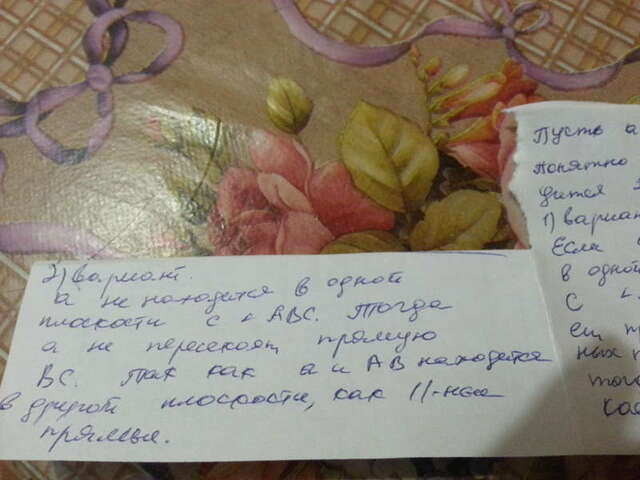 2) вариант.
а не находится в одной
плоскости с ∠ АВС. Тогда
а не пересекает прямую
ВС. Так как а и АВ находятся
в другой плоскости, как ||-ные
прямые.
Пусть а
понятно
1) вариан
Если
в одной
С ∠
ещ пр
ных п
того